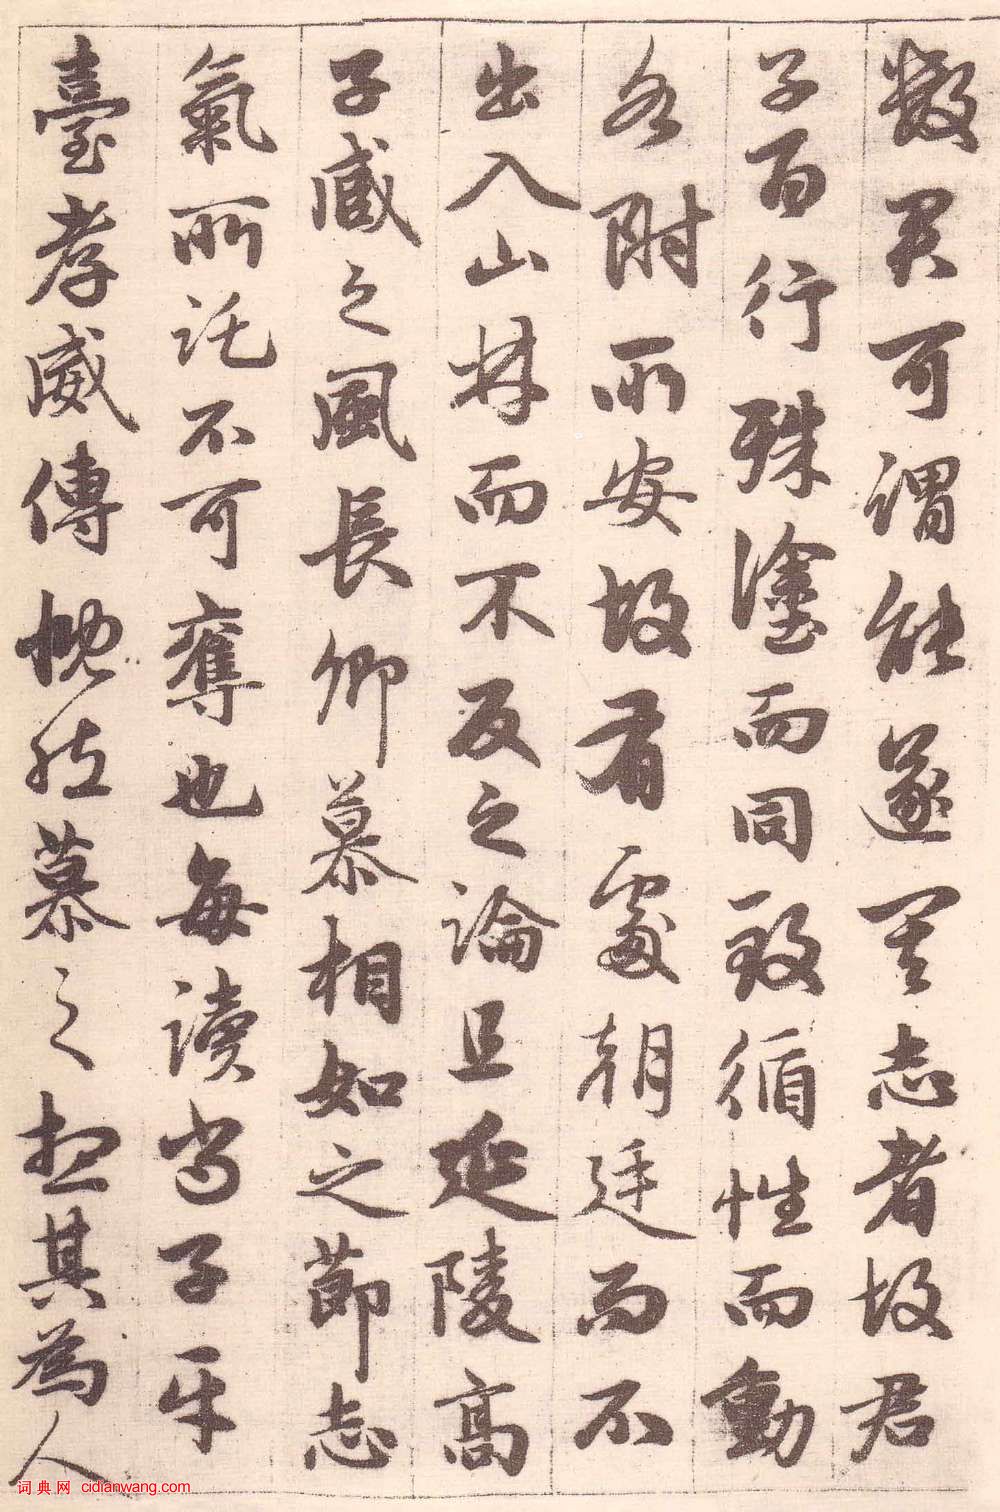 數君可謂能遂其志者故君
子百行殊塗而同致循性而動
各附所安故有處朝廷而不
出入山林而不反之論且延陵高
子臧之風長卿慕相如之節志
氣所託不可奪也每讀尚子平
臺孝威傳慨然慕之想其為人
词典网 cidianwang.com